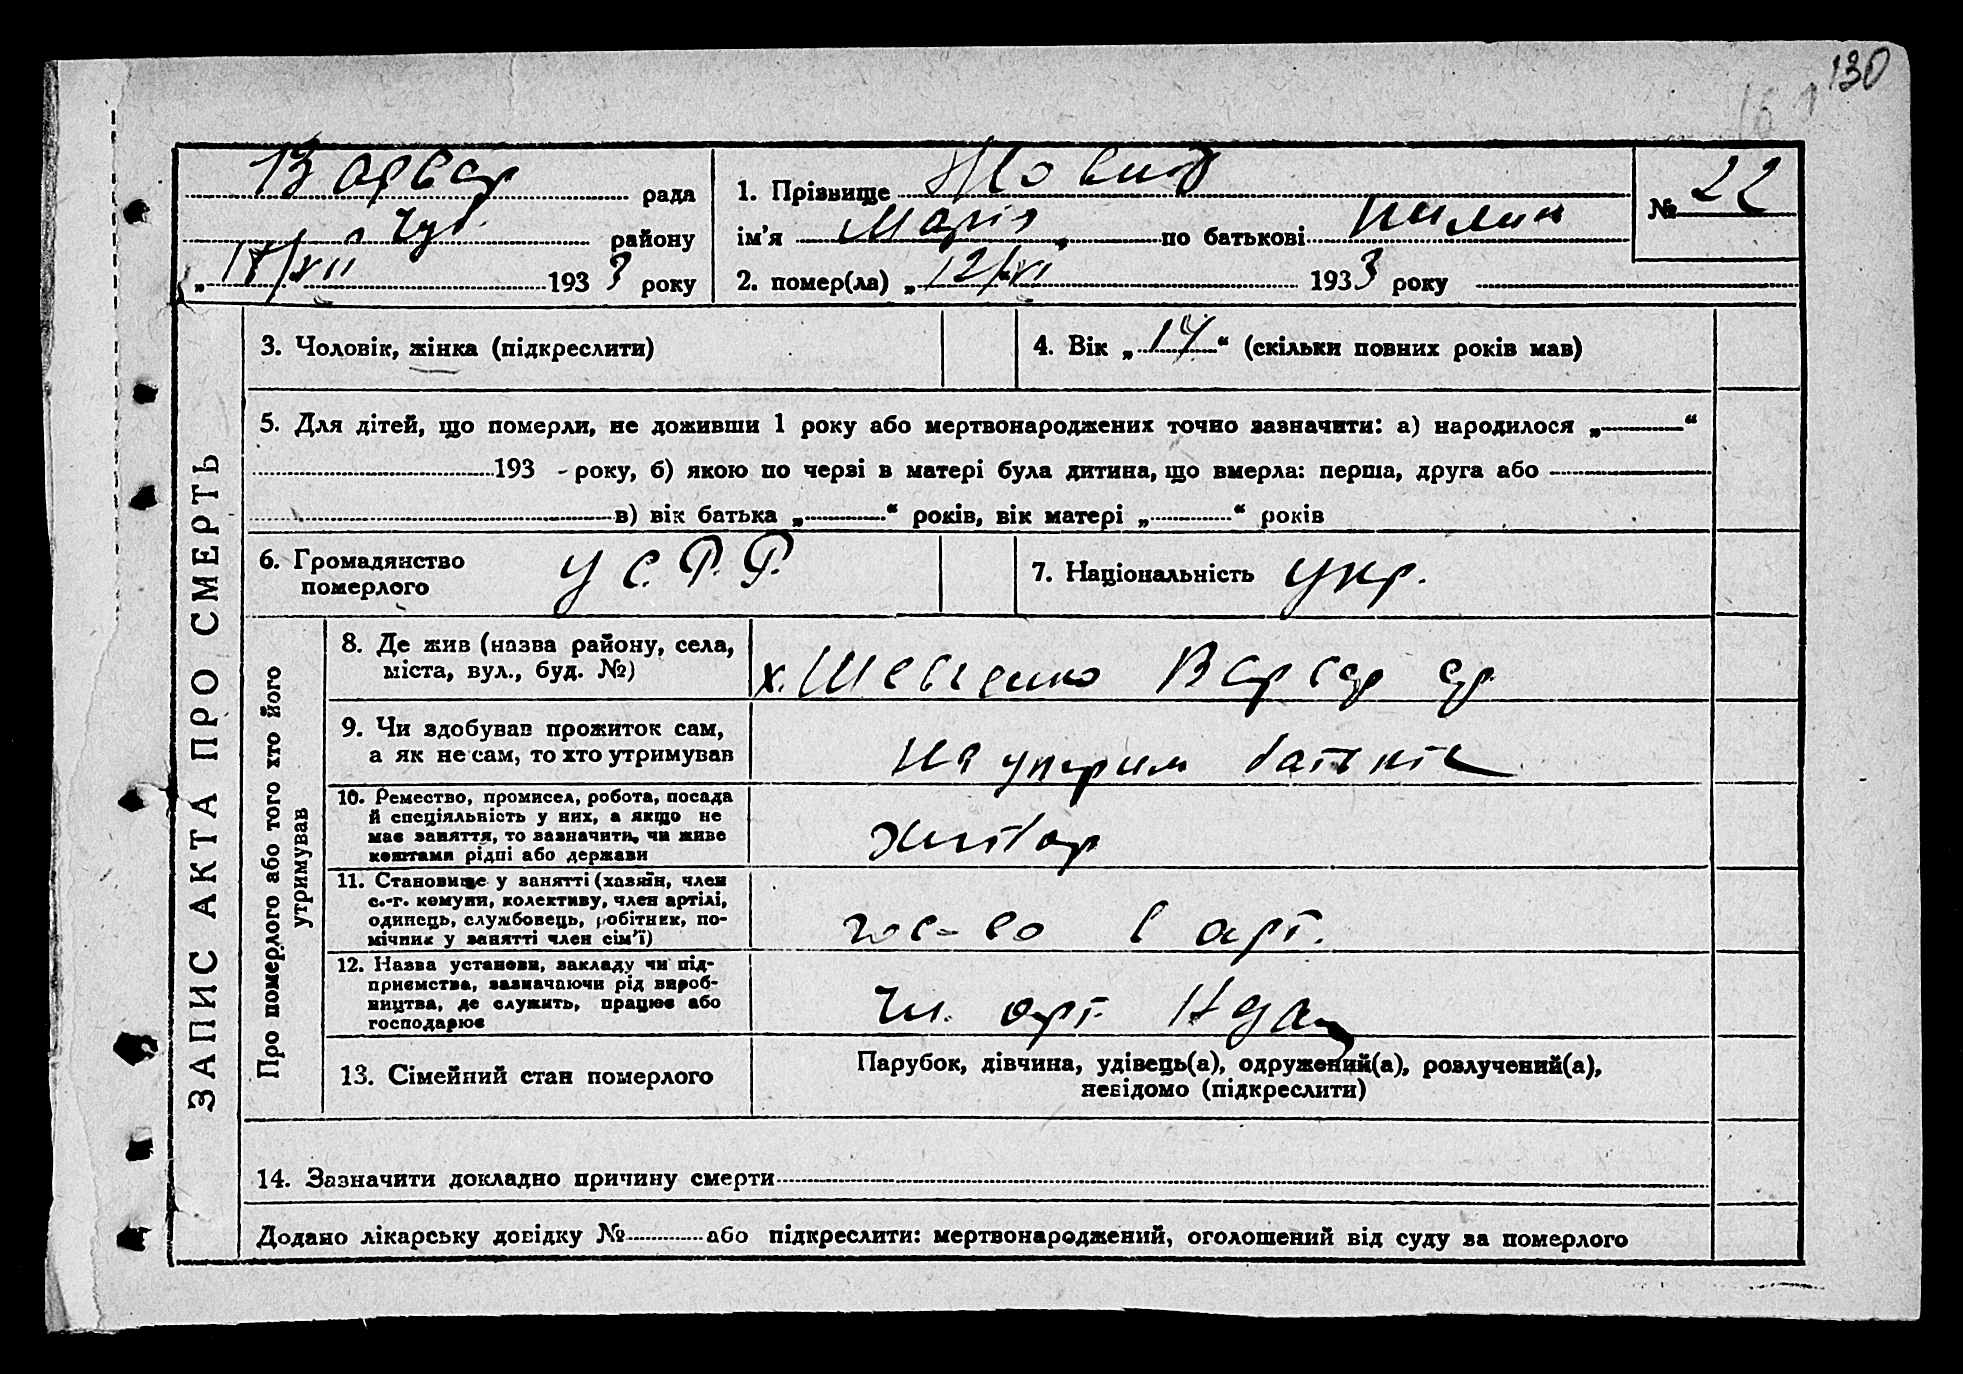 130
Варвар рада
Чуб. району
„17/XII 1933 року
1. Прізвище
ім'я Марія по батькові Пилип
2. помер(ла) „12/VI 1933 року
№ 22
ЗАПИС АКТА ПРО СМЕРТЬ
3. Чоловік, жінка (підкреслити)
4. Вік „14“ (скільки повних років мав)
5. Для дітей, що померли, не доживши 1 року або мертвонароджених точно зазначити: а) народилося „ “
193 - року, б) якою по черві в матері була дитина, що вмерла: перша, друга або
в) вік батька „ “ років, вік матері „ “ років
6. Громадянство
померлого
У С. Р. Р.
7. Національність Укр.
Про померлого або того хто його
утримував
8. Де жив (назва району, села,
міста, вул., буд. №)
х. Шевченко Варвар ср
9. Чи здобував прожиток сам,
а як не сам, то хто утримував
На утрим батьків
10. Ремество, промисел, робота, посада
й спеціяльність у них, а якщо не
має заняття, то зазначити, чи живе
коштами рідні або держави
Хлібор
11. Становище у занятті (хазяїн, член
с.-г. комуни, колективу, член артілі,
одинець, службовець, робітник, по-
мічник у занятті член сім'ї)
гос-во в арт.
12. Назва установи, закладу чи під-
приємства, зазначаючи рід вироб-
ництва, де служить, працює або
господарює
Чл. арт.
13. Сімейний стан померлого
Парубок, дівчина, удівець(а), одружений(а), розлучений(а),
невідомо (підкреслити)
14. Зазначити докладно причину смерти
Додано лікарську довідку № або підкреслити: мертвонароджений, оголошений від суду за померлого